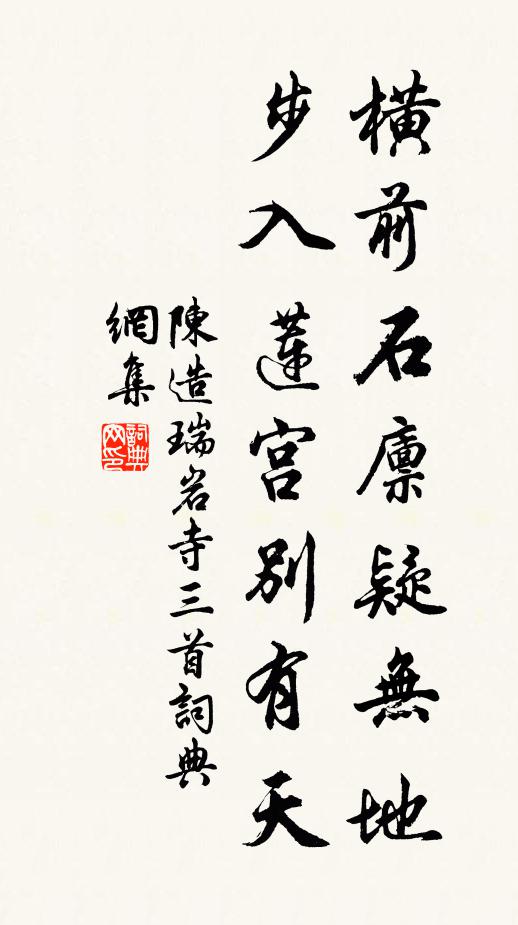 橫前石廪疑無地
步入蓮宮別有天
陳造瑞岩寺三首詞典
網集
詞典網印